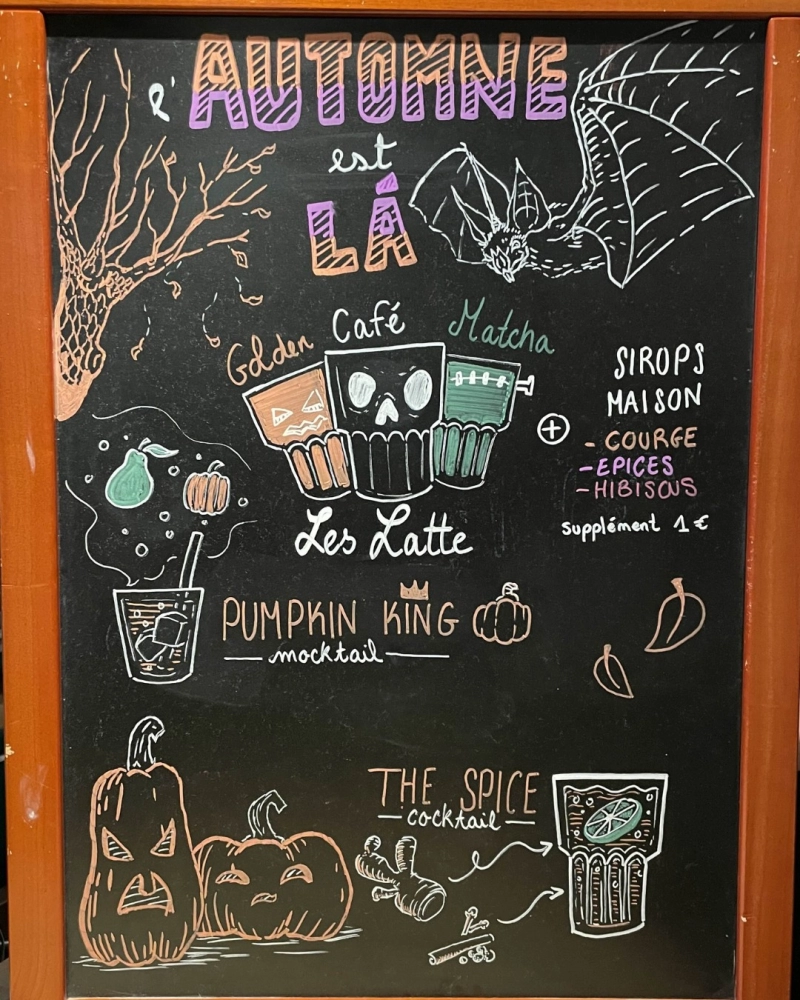 l'AUTOMNE
est
LÁ
Golden Café Matcha
+
SIROPS
MAISON
- COURGE
- EPICES
- HIBISCUS
supplément 1 €
Les Latte
PUMPKIN KING
mocktail
THE SPICE
cocktail